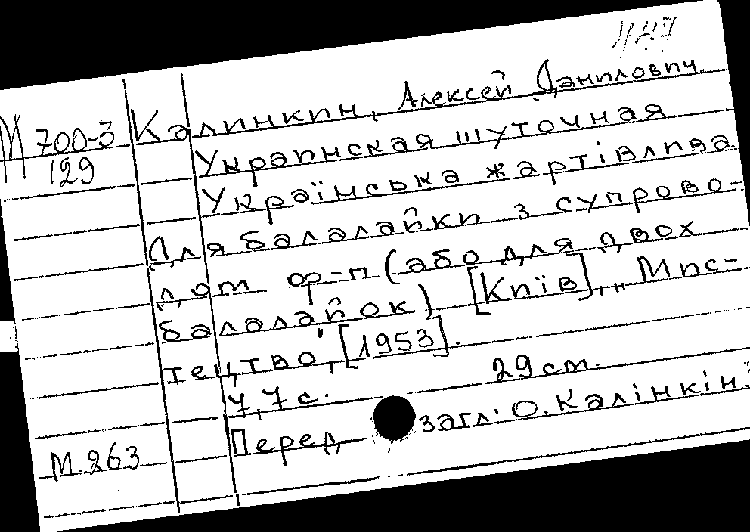 М 700-3
129
Калинкин, Алексей Данилович
Украинская шуточная
Українська жартівлива
Для балалайки з супрово-
дом ф-п (або для двох
балалайок). [Київ], „Мис-
тецтво", [1953].
7,7 с. 29 см.
Перед загл: О. Калінкін.
М.263